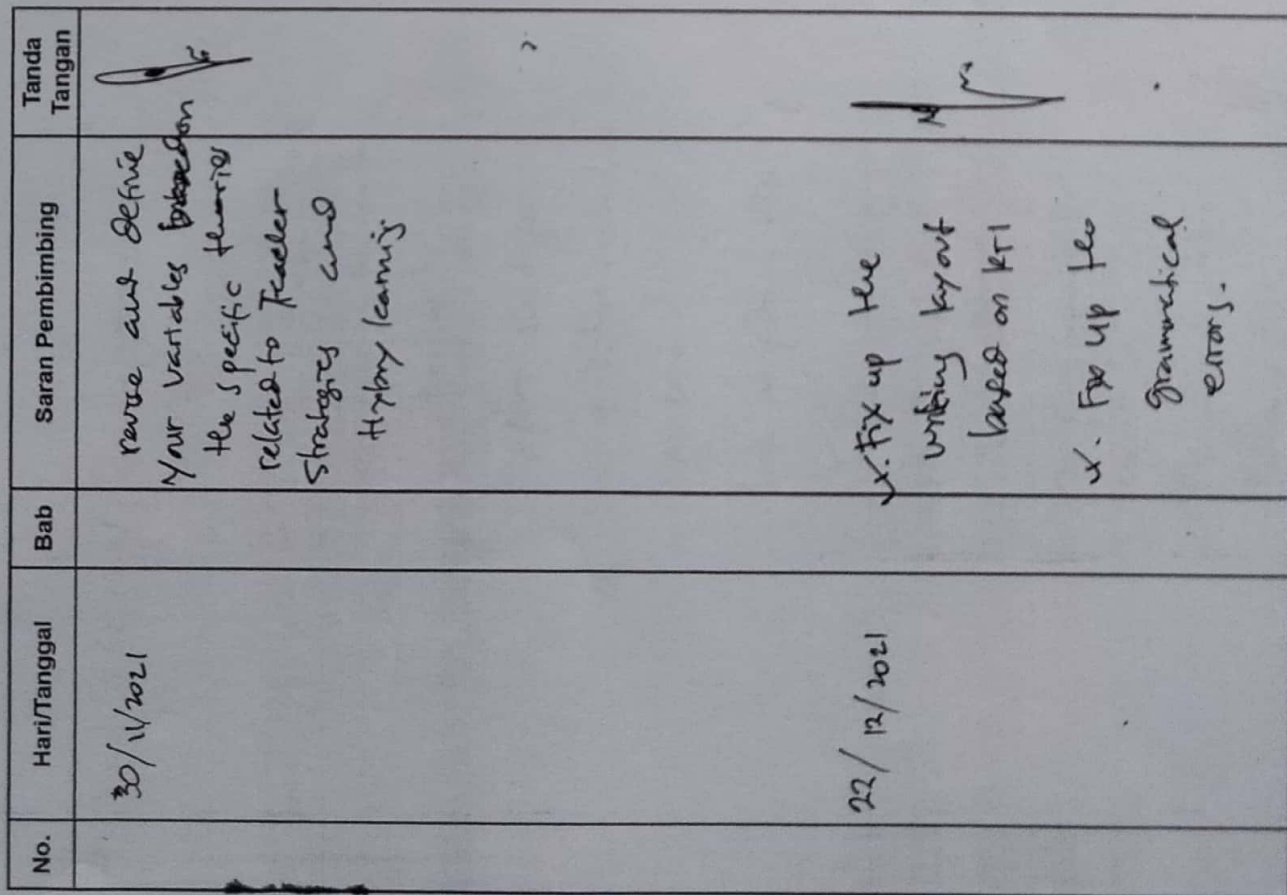 No.
Hari/Tanggal
Bab
Saran Pembimbing
Tanda
Tangan
30/11/2021
and define
your variables
the specific theories
related to Teacher
Strategies and
learning.
22/12/2021
Fix up the
writing layout
based on KTI
Fix up the
grammatical
errors.